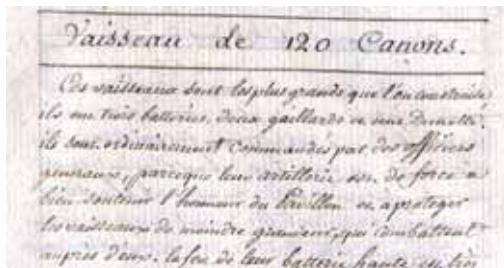 Vaisseau de 120 Canons.
Ces vaisseaux sont les plus grands que l'on construise
ils ont trois batteries, deux gaillards et une Dunette.
ils sont ordinairement commandés par des officiers
généraux, parceque leur artillerie est de force a
bien soutenir l'honneur du Pavillon et a proteger
les vaisseaux de moindre grandeur, qui combattent
auprès d'eux. le feu de leur batterie haute est très